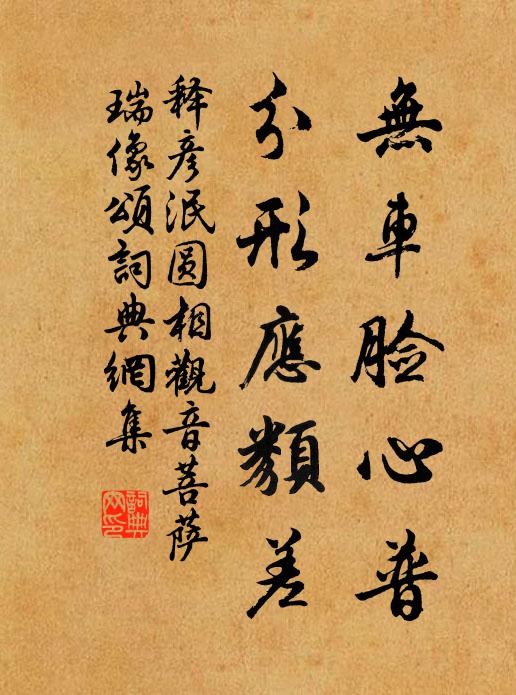 無車臉心普
分形應類差
释彦泯圆相觀音菩薩
瑞像頌詞典網集
詞典